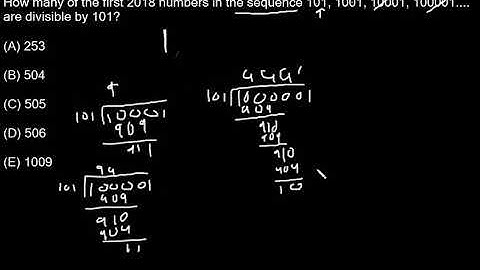 How many of the first 2018 numbers in the sequence 101, 1001, 10001, 100001....
are divisible by 101?
(A) 253
(B) 504
(C) 505
(D) 506
(E) 1009
9
101 10001
909
911
99
101 100001
909
910
909
11
101 1000001
909
910
909
910
909
10